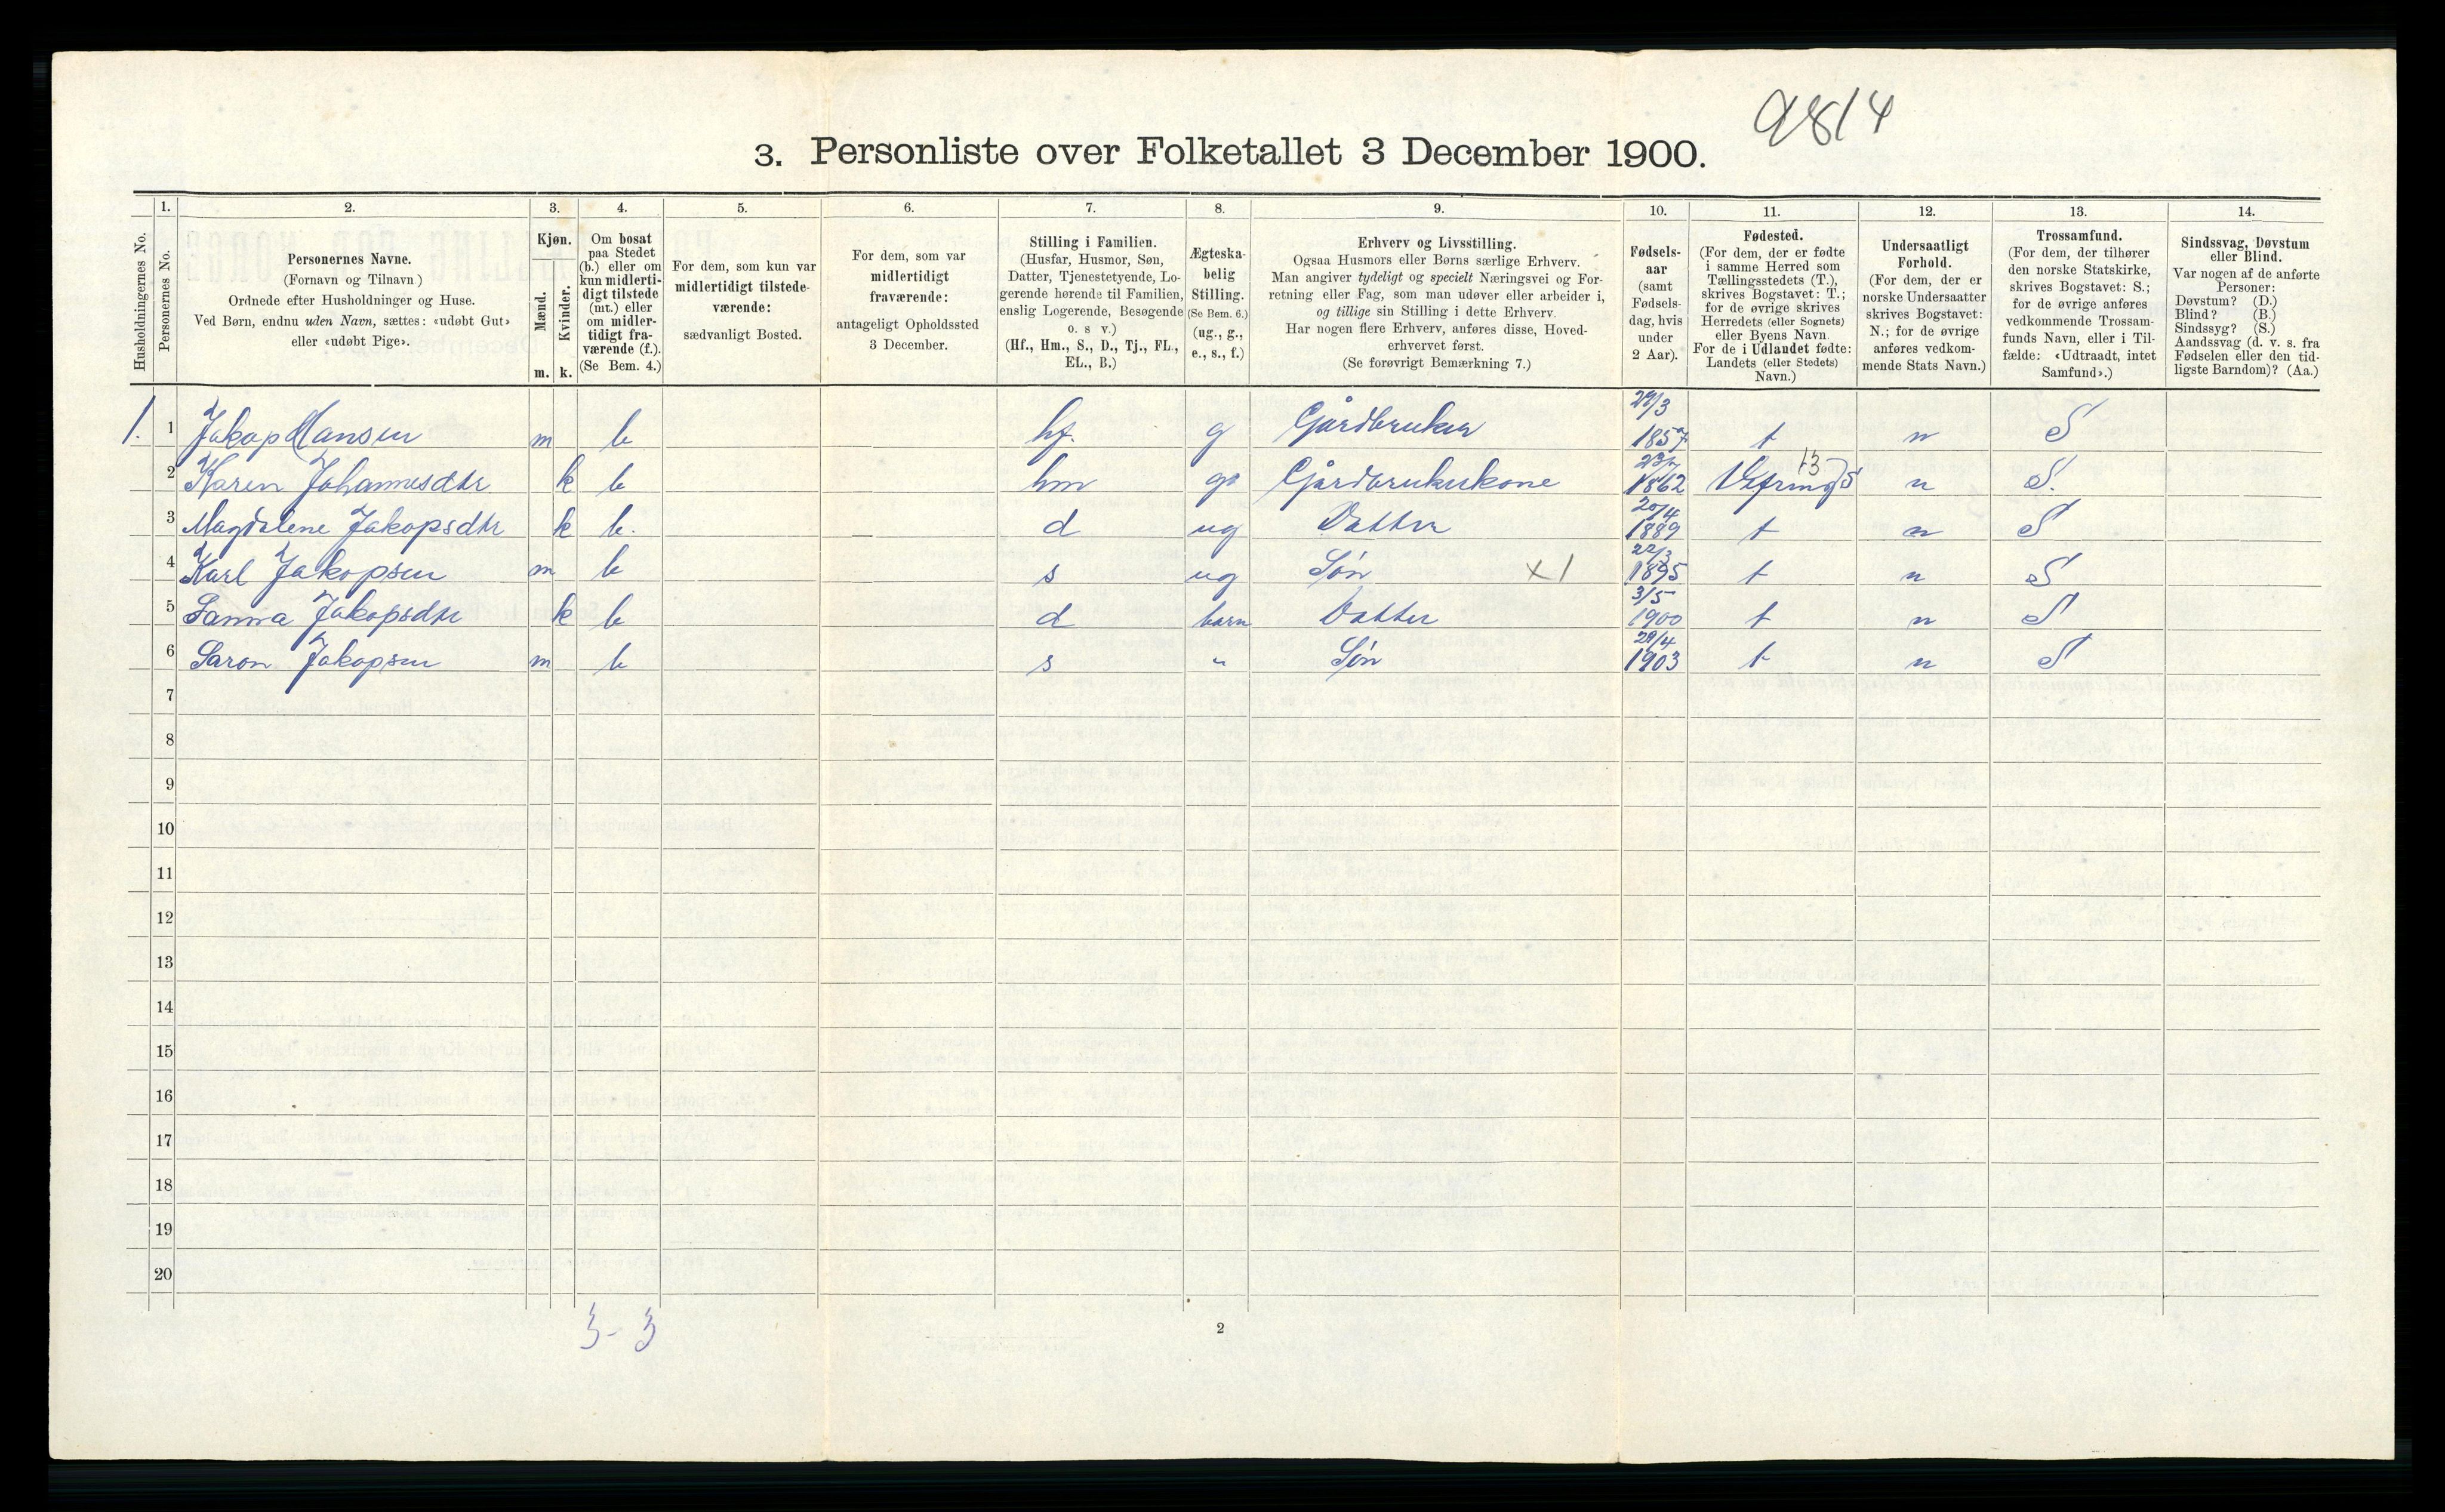 9814
3. Personliste over Folketallet 3 December 1900.
Husholdningernes No.
1.
Personernes No.
2.
Personernes Navne.
(Fornavn og Tilnavn)
Ordnede efter Husholdninger og Huse.
Ved Børn, endnu uden Navn, sættes: «udøbt Gut»
eller «udøbt Pige».
3.
Kjøn.
Mænd.
Kvinder.
m. k.
4.
Om bosat
paa Stedet
(b.) eller om
kun midlerti-
digt tilstede
(mt.) eller
om midler-
tidigt fra-
værende (f.).
(Se Bem. 4.)
5.
For dem, som kun var
midlertidigt tilstede-
værende:
sædvanligt Bosted.
6.
For dem, som var
midlertidigt
fraværende:
antageligt Opholdssted
3 December.
7.
Stilling i Familien.
(Husfar, Husmor, Søn,
Datter, Tjenestetyende, Lo-
gerende hørende til Familien,
enslig Logerende, Besøgende
o. s v.)
(Hf., Hm., S., D., Tj., FL.,
EL., B.)
8.
Ægteska-
belig
Stilling.
(Se Bem. 6.)
(ug., g.,
e., s., f.)
9.
Erhverv og Livsstilling.
Ogsaa Husmors eller Børns særlige Erhverv.
Man angiver tydeligt og specielt Næringsvei og For-
retning eller Fag, som man udøver eller arbeider i,
og tillige sin Stilling i dette Erhverv.
Har nogen flere Erhverv, anføres disse, Hoved-
erhvervet først.
(Se forøvrigt Bemærkning 7.)
10.
Fødsels-
aar
(samt
Fødsels-
dag, hvis
under
2 Aar).
11.
Fødested.
(For dem, der er fødte
i samme Herred som
Tællingsstedets (T.),
skrives Bogstavet: T.;
for de øvrige skrives
Herredets (eller Sognets)
eller Byens Navn.
For de i Udlandet fødte:
Landets (eller Stedets)
Navn.)
12.
Undersaatligt
Forhold.
(For dem, der er
norske Undersaatter
skrives Bogstavet:
N.; for de øvrige
anføres vedkom-
mende Stats Navn.)
13.
Trossamfund.
(For dem, der tilhører
den norske Statskirke,
skrives Bogstavet: S.;
for de øvrige anføres
vedkommende Trossam-
funds Navn, eller i Til-
fælde: «Udtraadt, intet
Samfund».)
14.
Sindssvag, Døvstum
eller Blind.
Var nogen af de anførte
Personer:
Døvstum? (D.)
Blind? (B.)
Sindssyg? (S.)
Aandssvag (d. v. s. fra
Fødselen eller den tid-
ligste Barndom)? (Aa.)
1. 1 Jakop Hansen m b hf. g Gårdbruker 1857 t n S
2 Karen Johannesdtr k b hm g Gårdbrukerkone 1862 13 n S.
3 Magdalene Jakopsdtr k b. d ug Datter 20/4 1889 t n S
4 Karl Jakopsen m b s ug Søn x1 22/3 1895 t n S
5 Sanna Jakopsdtr k b d barn Datter 3/5 1900 t n S
6 Saron Jakopsen m b s " Søn 29/4 1903 t n S
7
8
9
10
11
12
13
14
15
16
17
18
19
20
3 - 3
2